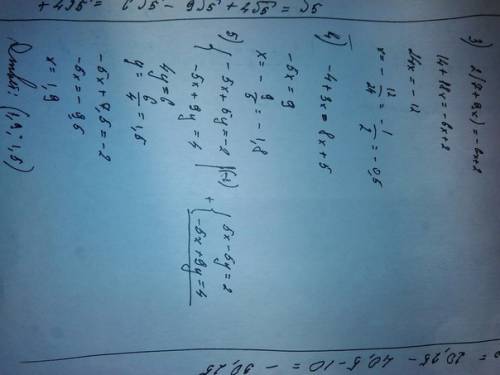 3) 2(7+9x)=-6x+2
14+18x=-6x+2
24x=-12
x=-12/24=-1/2=-0,5
4) -4+3x=8x+5
-5x=9
x=-9/5=-1,8
5) { -5x+5y=-2 |(-1) + { 5x-5y=2
-5x+9y=4 -5x+9y=4
4y=6
y=6/4=1,5
-5x+7,5=-2
-5x=-9,5
x=1,9
Ответ: (1,9; 1,5)
= 20,25 - 40,5 - 10 = - 30,25